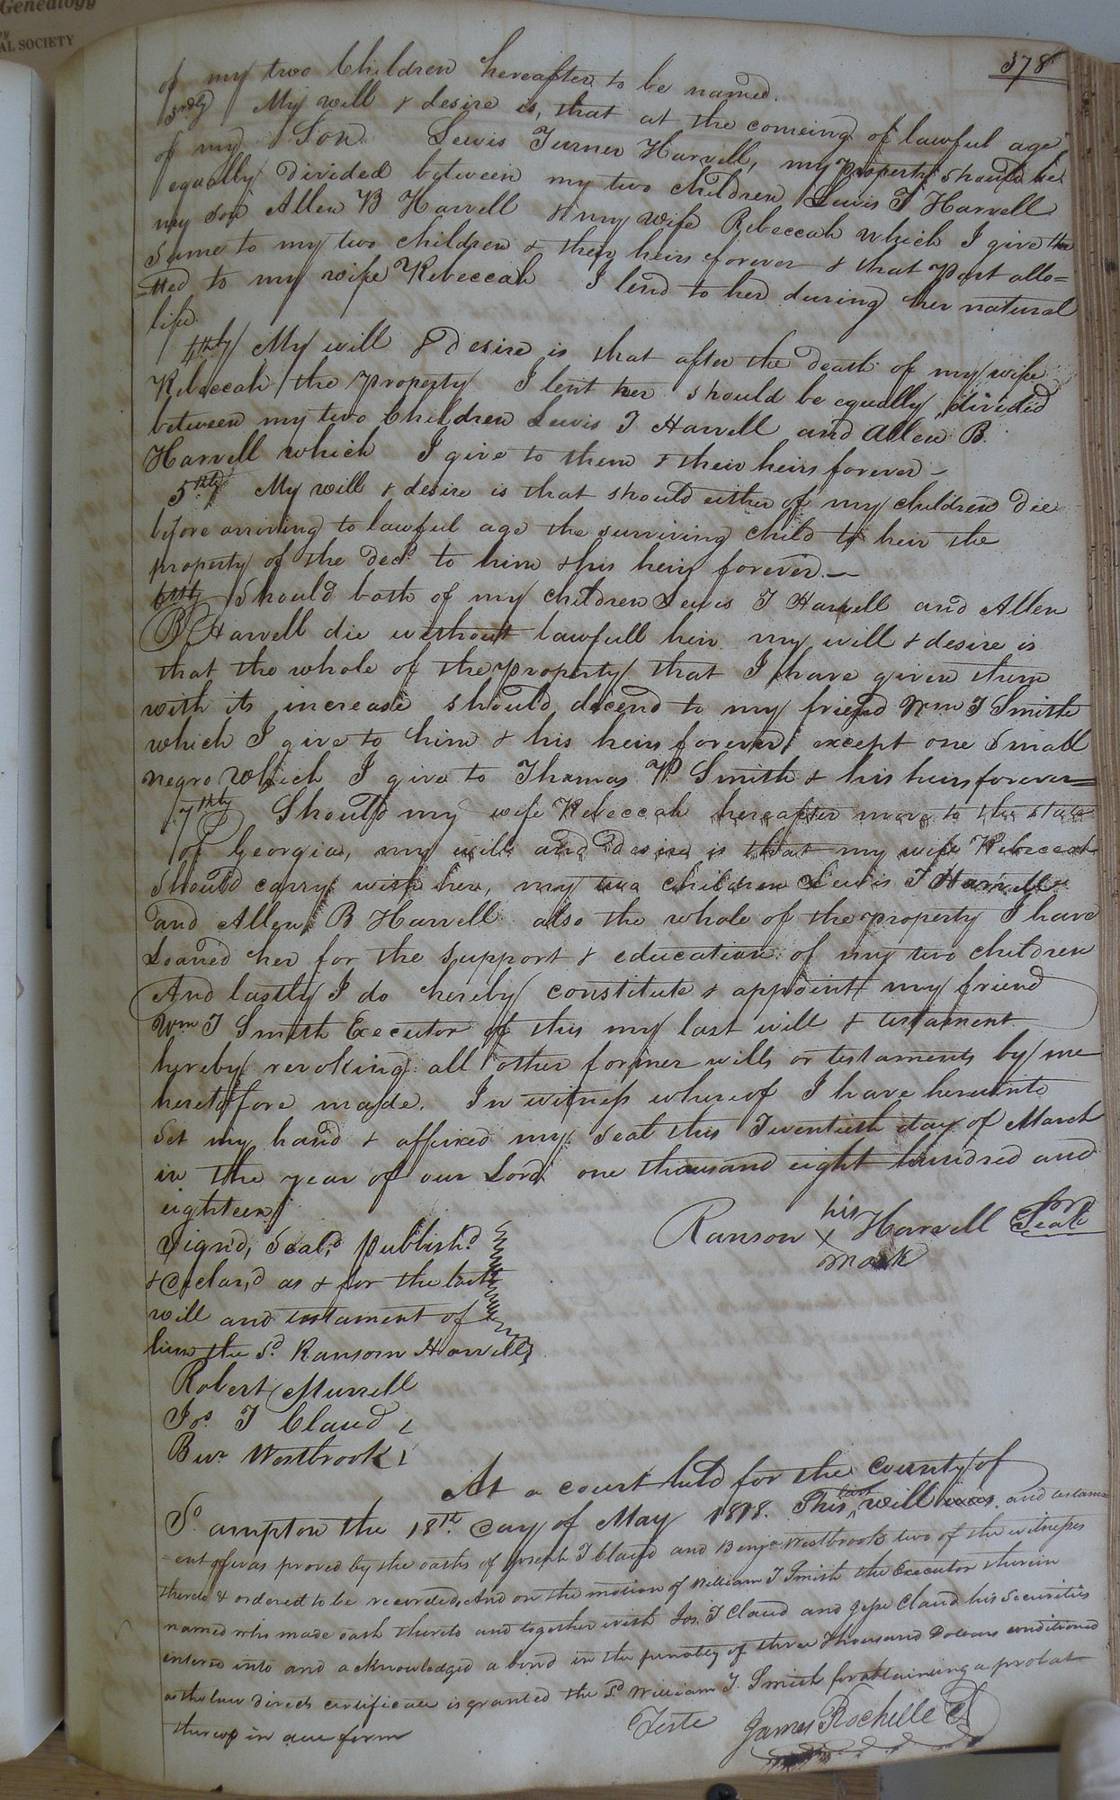 Genealogy
AL SOCIETY
378
of my two Children hereafter to be named.
3rdly My will & desire is, that at the comeing of lawful age
of my Son Lewis Turner Harvell, my property should be
equally divided between my two children Lewis T Harvell
my son Allen B Harvell & my wife Rebeccah which I give the
same to my two children & their heirs forever & that part allo=
=tted to my wife Rebeccah I lend to her during her natural
life
4thly My will & desire is that after the death of my wife
Rebeccah the property I lent her should be equally divided
between my two Children Lewis T Harvell and Allen B.
Harvell which I give to them & their heirs forever –
5thly My will & desire is that should either of my children die
before arriving to lawful age the surviving child to heir the
property of the Decd to him & his heirs forever. —
6thly Should both of my children Lewis T Harvell and Allen
B Harvell die without lawfull heir my will & desire is
that the whole of the property that I have given them
with its increase should decend to my friend Wm T Smith
which I give to him & his heirs forever, except one small
negro which I give to Thomas P Smith & his heirs forever=
7thly Should my wife Rebeccah hereafter move to the state
of Georgia, my will and desire is that my wife Rebeccah
should carry with her, my two children Lewis T Harvell
and Allen B Harvell also the whole of the property I have
Loaned her for the support & education of my two children
And lastly I do hereby constitute & appoint my friend
Wm T Smith Executor of this my last will & testament
hereby revoking all other former wills or testaments by me
heretofore made. In witness whereof I have hereunto
set my hand & affixed my seal this Twentieth day of March
in the year of our Lord one thousand eight hundred and
eighteen
his
Ranson X Harvell Seal
mark
Signd, Seald, Publishd
& declar,d as & for the last
will and testament of
him the Sd Ransom Harvell
Robert Murrell
Jos T Claud
Benr Westbrook
At a court held for the county of
So ampton the 18th day of May 1818. This last will and testam
=ent was proved by the oaths of Joseph T Claud and Benja Westbrook two of the witnesses
thereto & ordered to be recorded, And on the motion of William T Smith the Executor therein
named who made oath thereto and together with Jos. T Claud and Jesse Claud his Securities
entered into and acknowledged a bond in the penalty of three Thousand Dollars conditioned
as the law directs certificate is granted the Sd William T. Smith for obtaining a probat
thereof in due form
Teste James Rochelle C